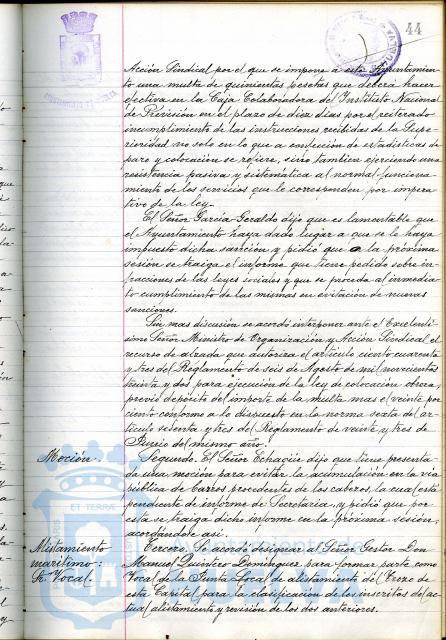 44
Acción Sindical por el que se impone a este Ayuntamien-
to una multa de quinientas pesetas que deberá hacer
efectiva en la Caja Colaboradora del Instituto Nacional
de Previsión en el plazo de diez días por el reiterado
incumplimiento de las instrucciones recibidas de la Supe-
rioridad no solo en lo que a confección de estadísticas de
paro y colocación se refiere, sino tambien ejerciendo una
resistencia pasiva y sistemática al normal funciona-
miento de los servicios que le corresponden por impera-
tivo de la ley.
El Señor García Geraldo dijo que es lamentable que
el Ayuntamiento haya dado lugar a que se le haya
impuesto dicha sanción y pidió que a la próxima
sesión se traiga el informe que tiene pedido sobre in-
fracciones de las leyes sociales y que se proceda al inmedia-
to cumplimiento de las mismas en evitación de nuevas
sanciones.
Sin mas discusión se acordó interponer ante el Excelentí-
simo Señor Ministro de Organización y Acción Sindical el
recurso de alzada que autoriza el artículo ciento cuarenta
y tres del Reglamento de seis de Agosto de mil novecientos
treinta y dos para ejecución de la ley de colocación obrera,
previo depósito del importe de la multa mas el veinte por
ciento conforme a lo dispuesto en la norma sexta del ar-
tículo sesenta y tres del Reglamento de veinte y tres de
Junio del mismo año.
Moción.
Segundo. El Señor Echacin dijo que tiene presenta-
da una moción para evitar la acumulación en la vía
pública de carros procedentes de los caberos, la cual está
pendiente de informe de Secretaría, y pidió que por
esta se traiga dicho informe en la próxima sesión,
acordándose así.
Alistamiento
marítimo:
Sr. Vocal.
Tercero. Se acordó designar al Señor Gestor Don
Manuel Quintero Dominguez para formar parte como
Vocal de la Junta Local de alistamiento del Trozo de
esta Capital para la clasificación de los inscritos del ac-
tual alistamiento y revisión de los dos anteriores.
ET TERRA